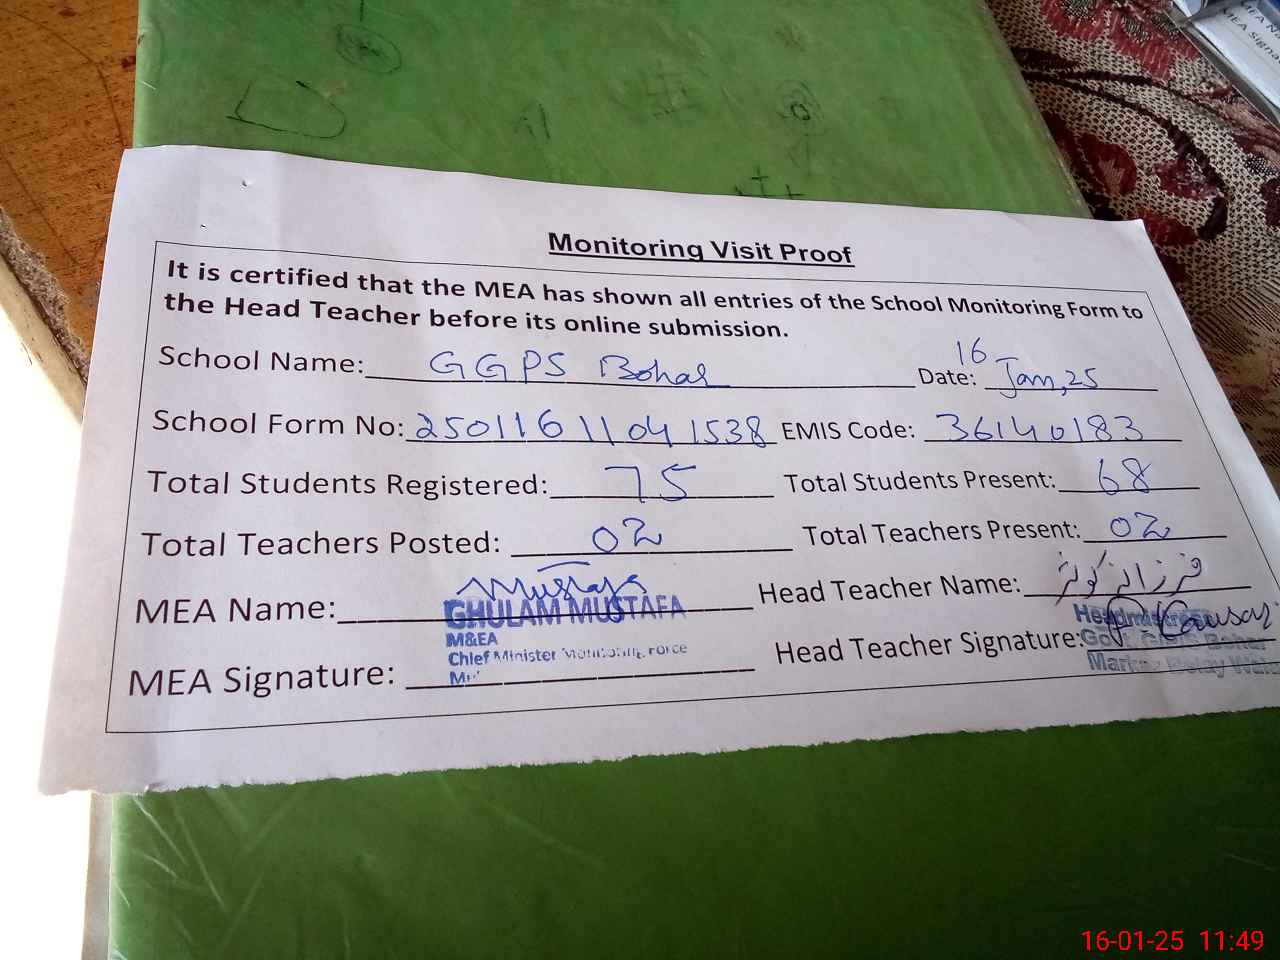 Monitoring Visit Proof
It is certified that the MEA has shown all entries of the School Monitoring Form to
the Head Teacher before its online submission.
School Name: GGPS Bohar Date: 16 Jan, 25
School Form No: 25011611041538 EMIS Code: 36140183
Total Students Registered: 75 Total Students Present: 68
Total Teachers Posted: 02 Total Teachers Present: 02
MEA Name: Mustafa Head Teacher Name: فرزانہ کوثر
GHULAM MUSTAFA
M&EA
Chief Minister Monitoring Force
MEA Signature: Head Teacher Signature: Kausar
Headmistress
Govt. Bohar
Markaz
MEA Signa
16-01-25 11:49